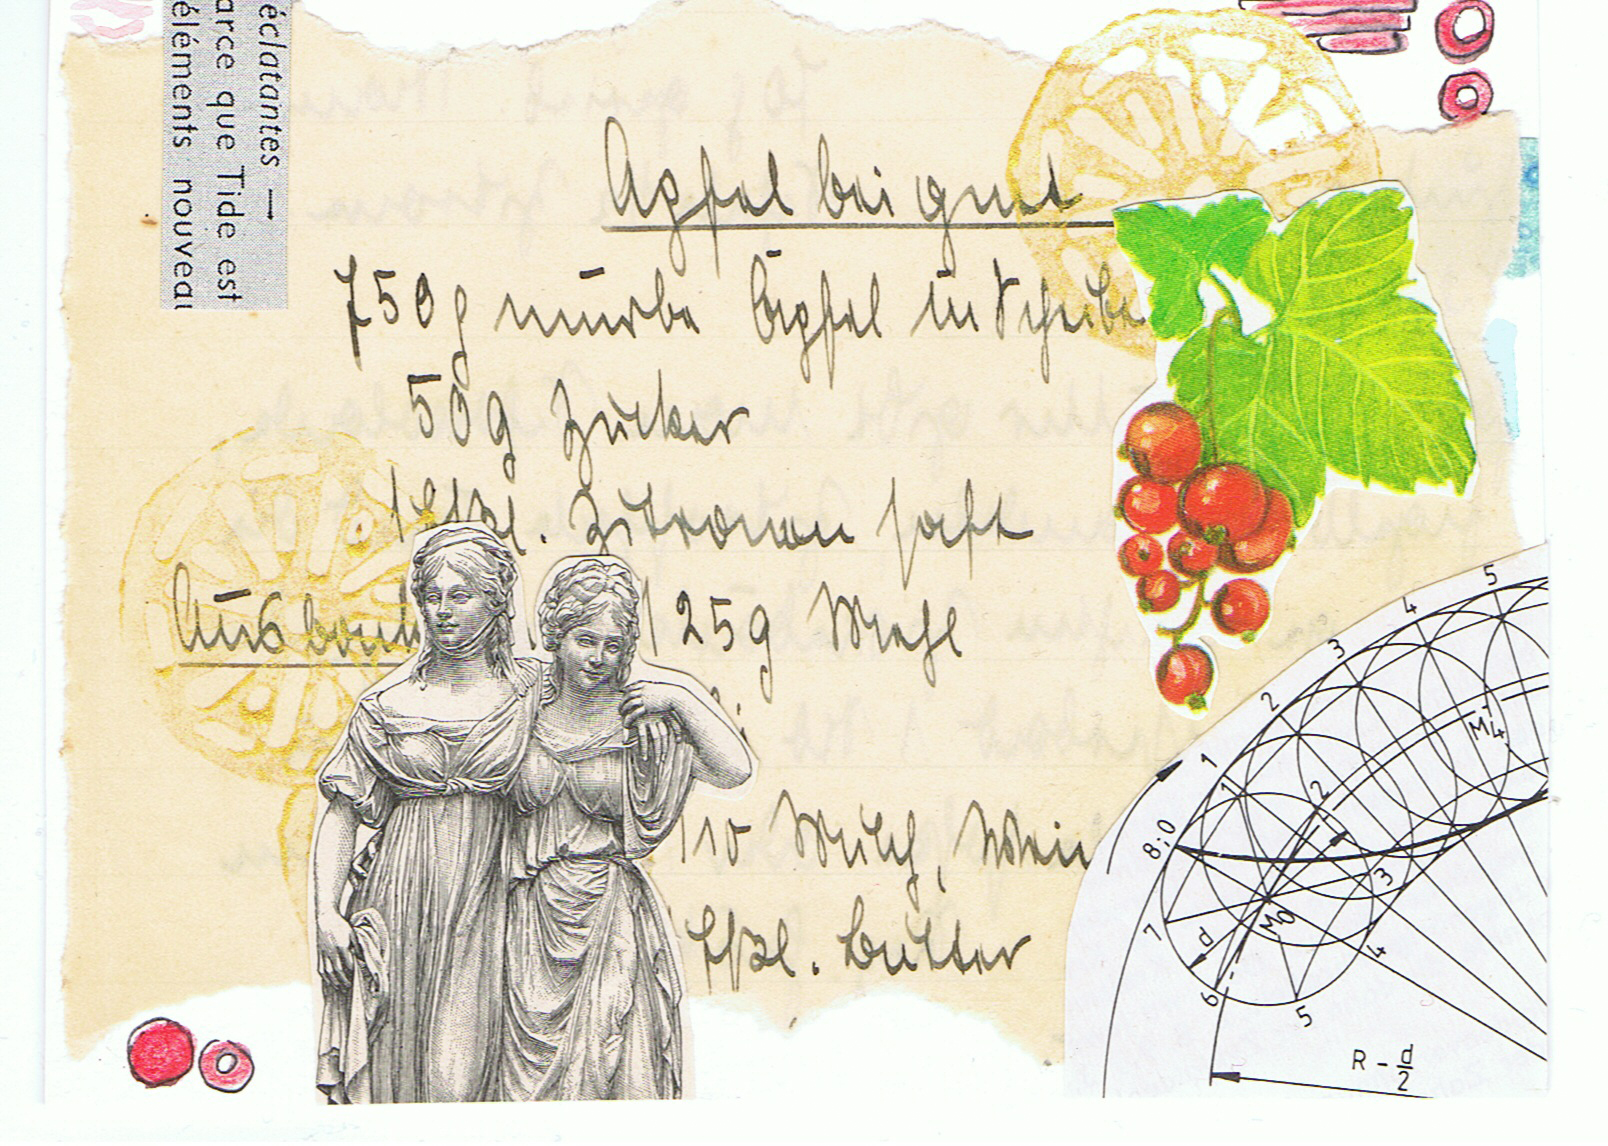 éclatantes —
arce que Tide est
éléments nouveau
Apfelbeignet
750g mürbe Äpfel in Scheibe
50g Zucker
1 Eßl. Zitronensaft
Ausback
125g Mehl
1/10 Milch, Wein
Eßl. Butter
5
4
3
2
1
8;0
7
6
5
4
3
2
1
M4
M0
d
R - d/2